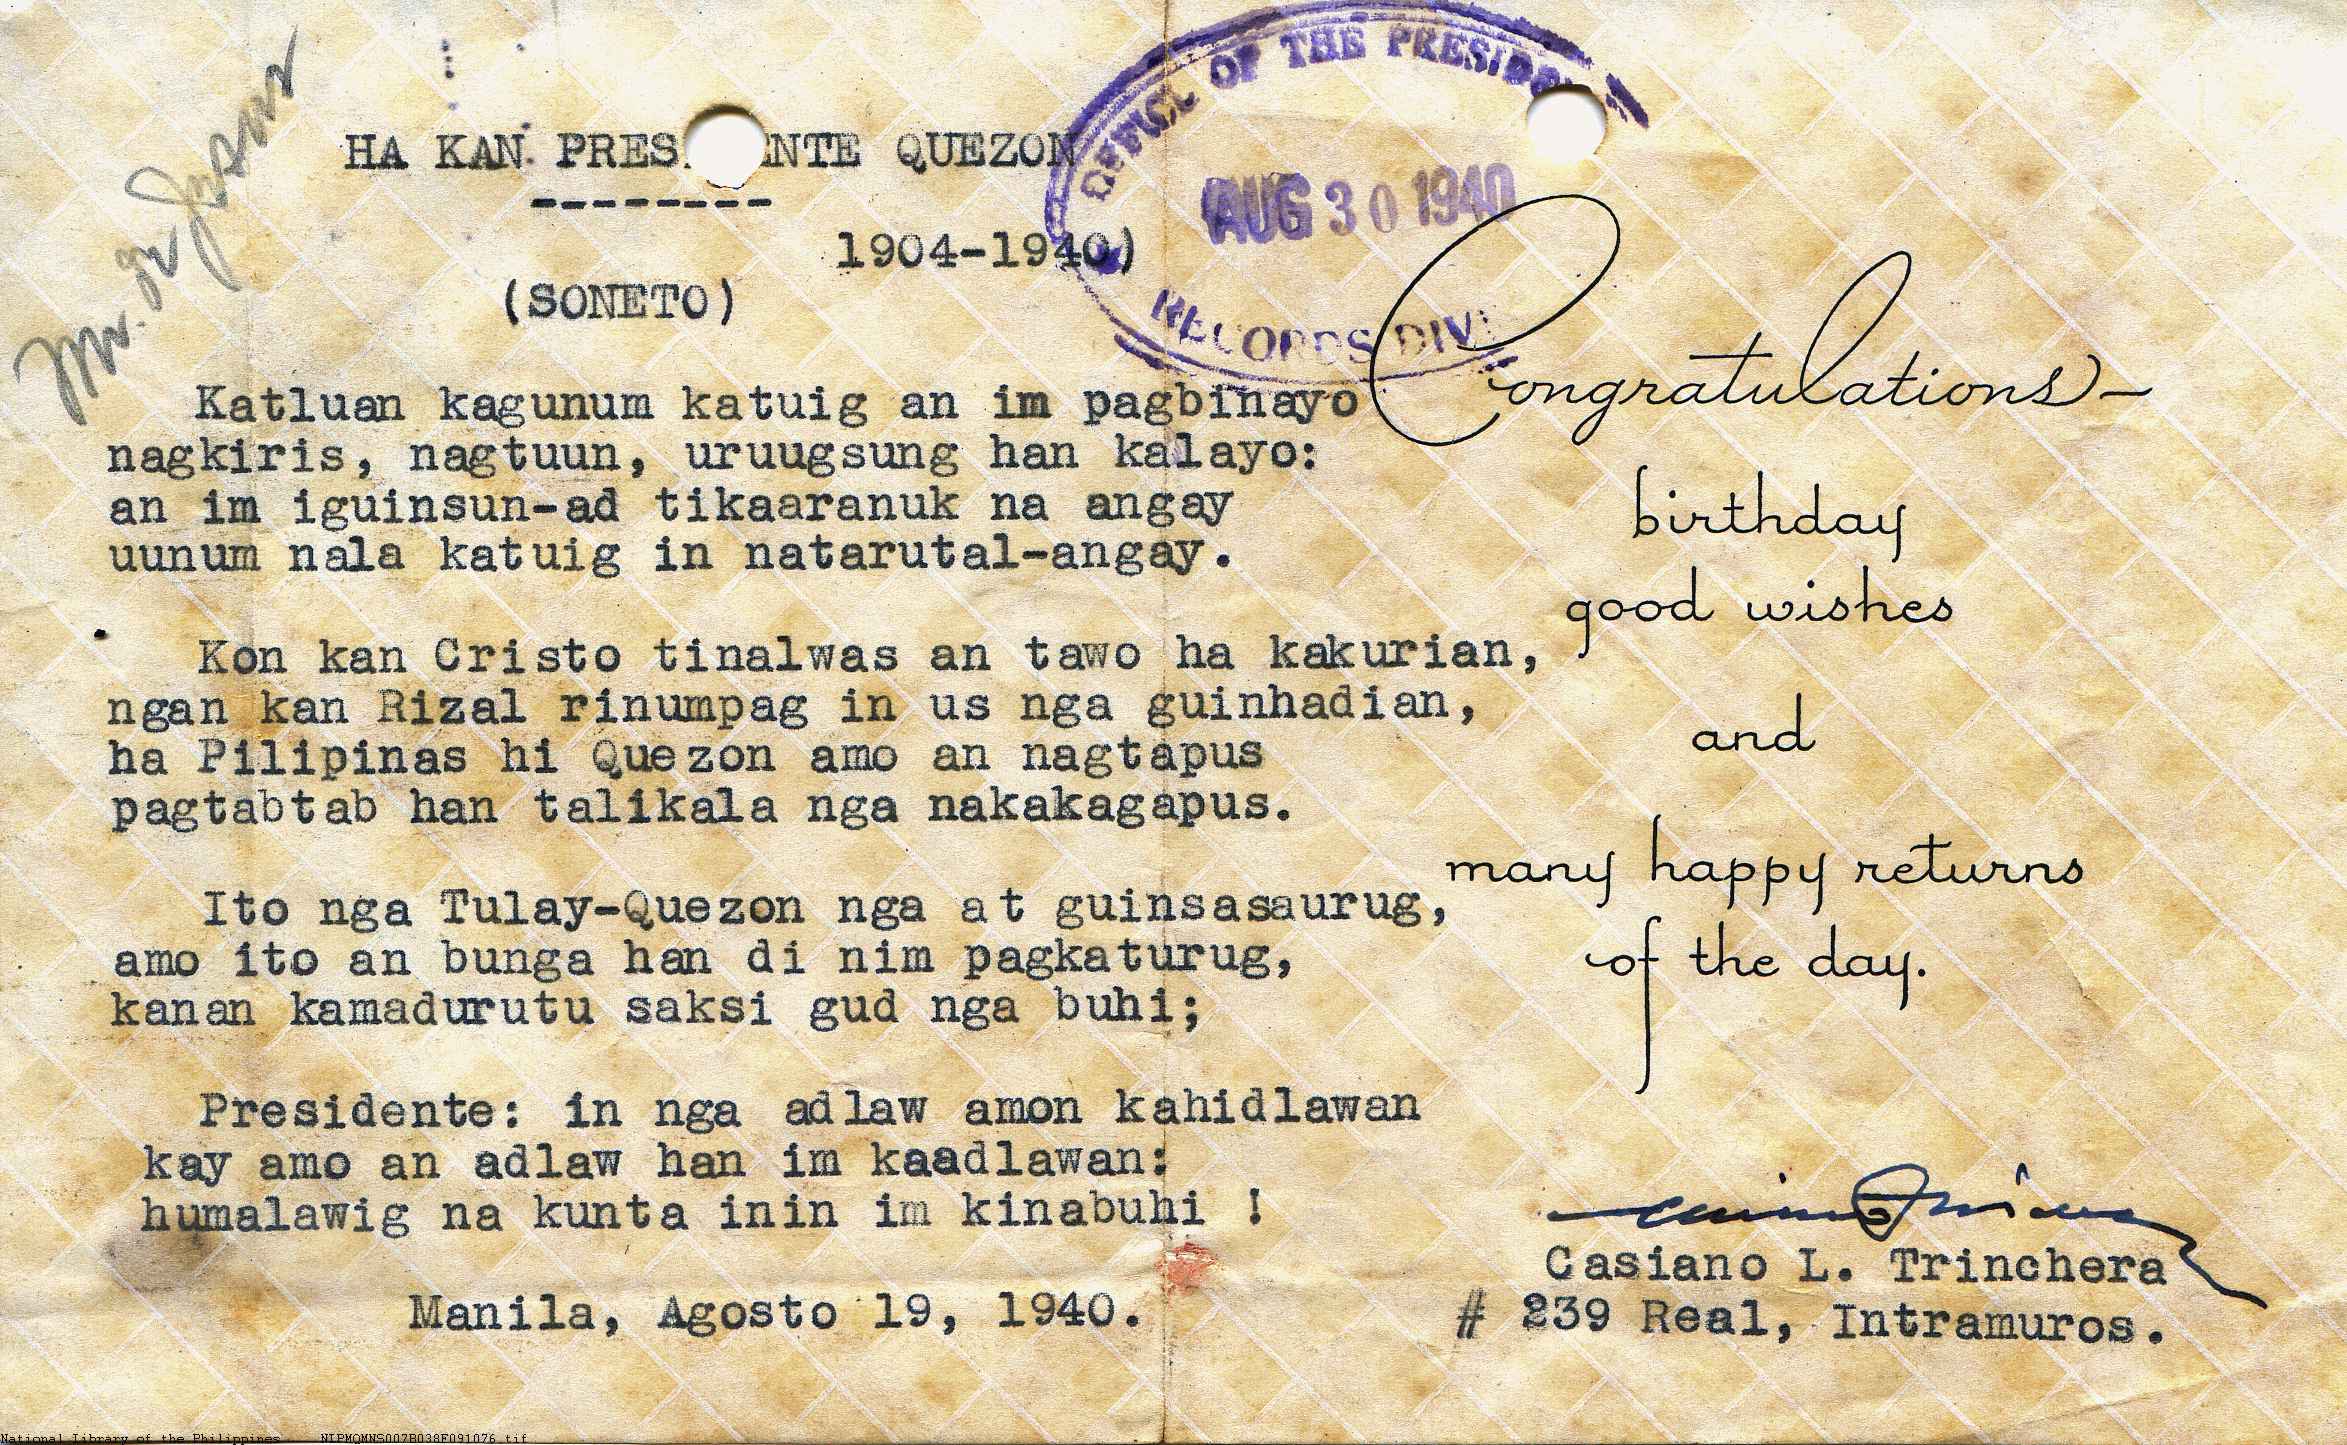 HA KAN PRESIDENTE QUEZON
--------
1904-1940)
(SONETO)
OFFICE OF THE PRESIDE
AUG 30 1940
RECORDS DIVI
Katluan kagunum katuig an im pagbinayo
nagkiris, nagtuun, uruugsung han kalayo:
an im iguinsun-ad tikaaranuk na angay
uunum nala katuig in natarutal-angay.
Kon kan Cristo tinalwas an tawo ha kakurian,
ngan kan Rizal rinumpag in us nga guinhadian,
ha Pilipinas hi Quezon amo an nagtapus
pagtabtab han talikala nga nakakagapus.
Ito nga Tulay-Quezon nga at guinsasaurug,
amo ito an bunga han di nim pagkaturug,
kanan kamadurutu saksi gud nga buhi;
Presidente: in nga adlaw amon kahidlawan
kay amo an adlaw han im kaadlawan:
humalawig na kunta inin im kinabuhi !
Manila, Agosto 19, 1940.
Congratulations-
birthday
good wishes
and
many happy returns
of the day.
Casiano L. Trinchera
# 239 Real, Intramuros.
National Library of the Philippines NLPMQMNS007B038F091076.tif